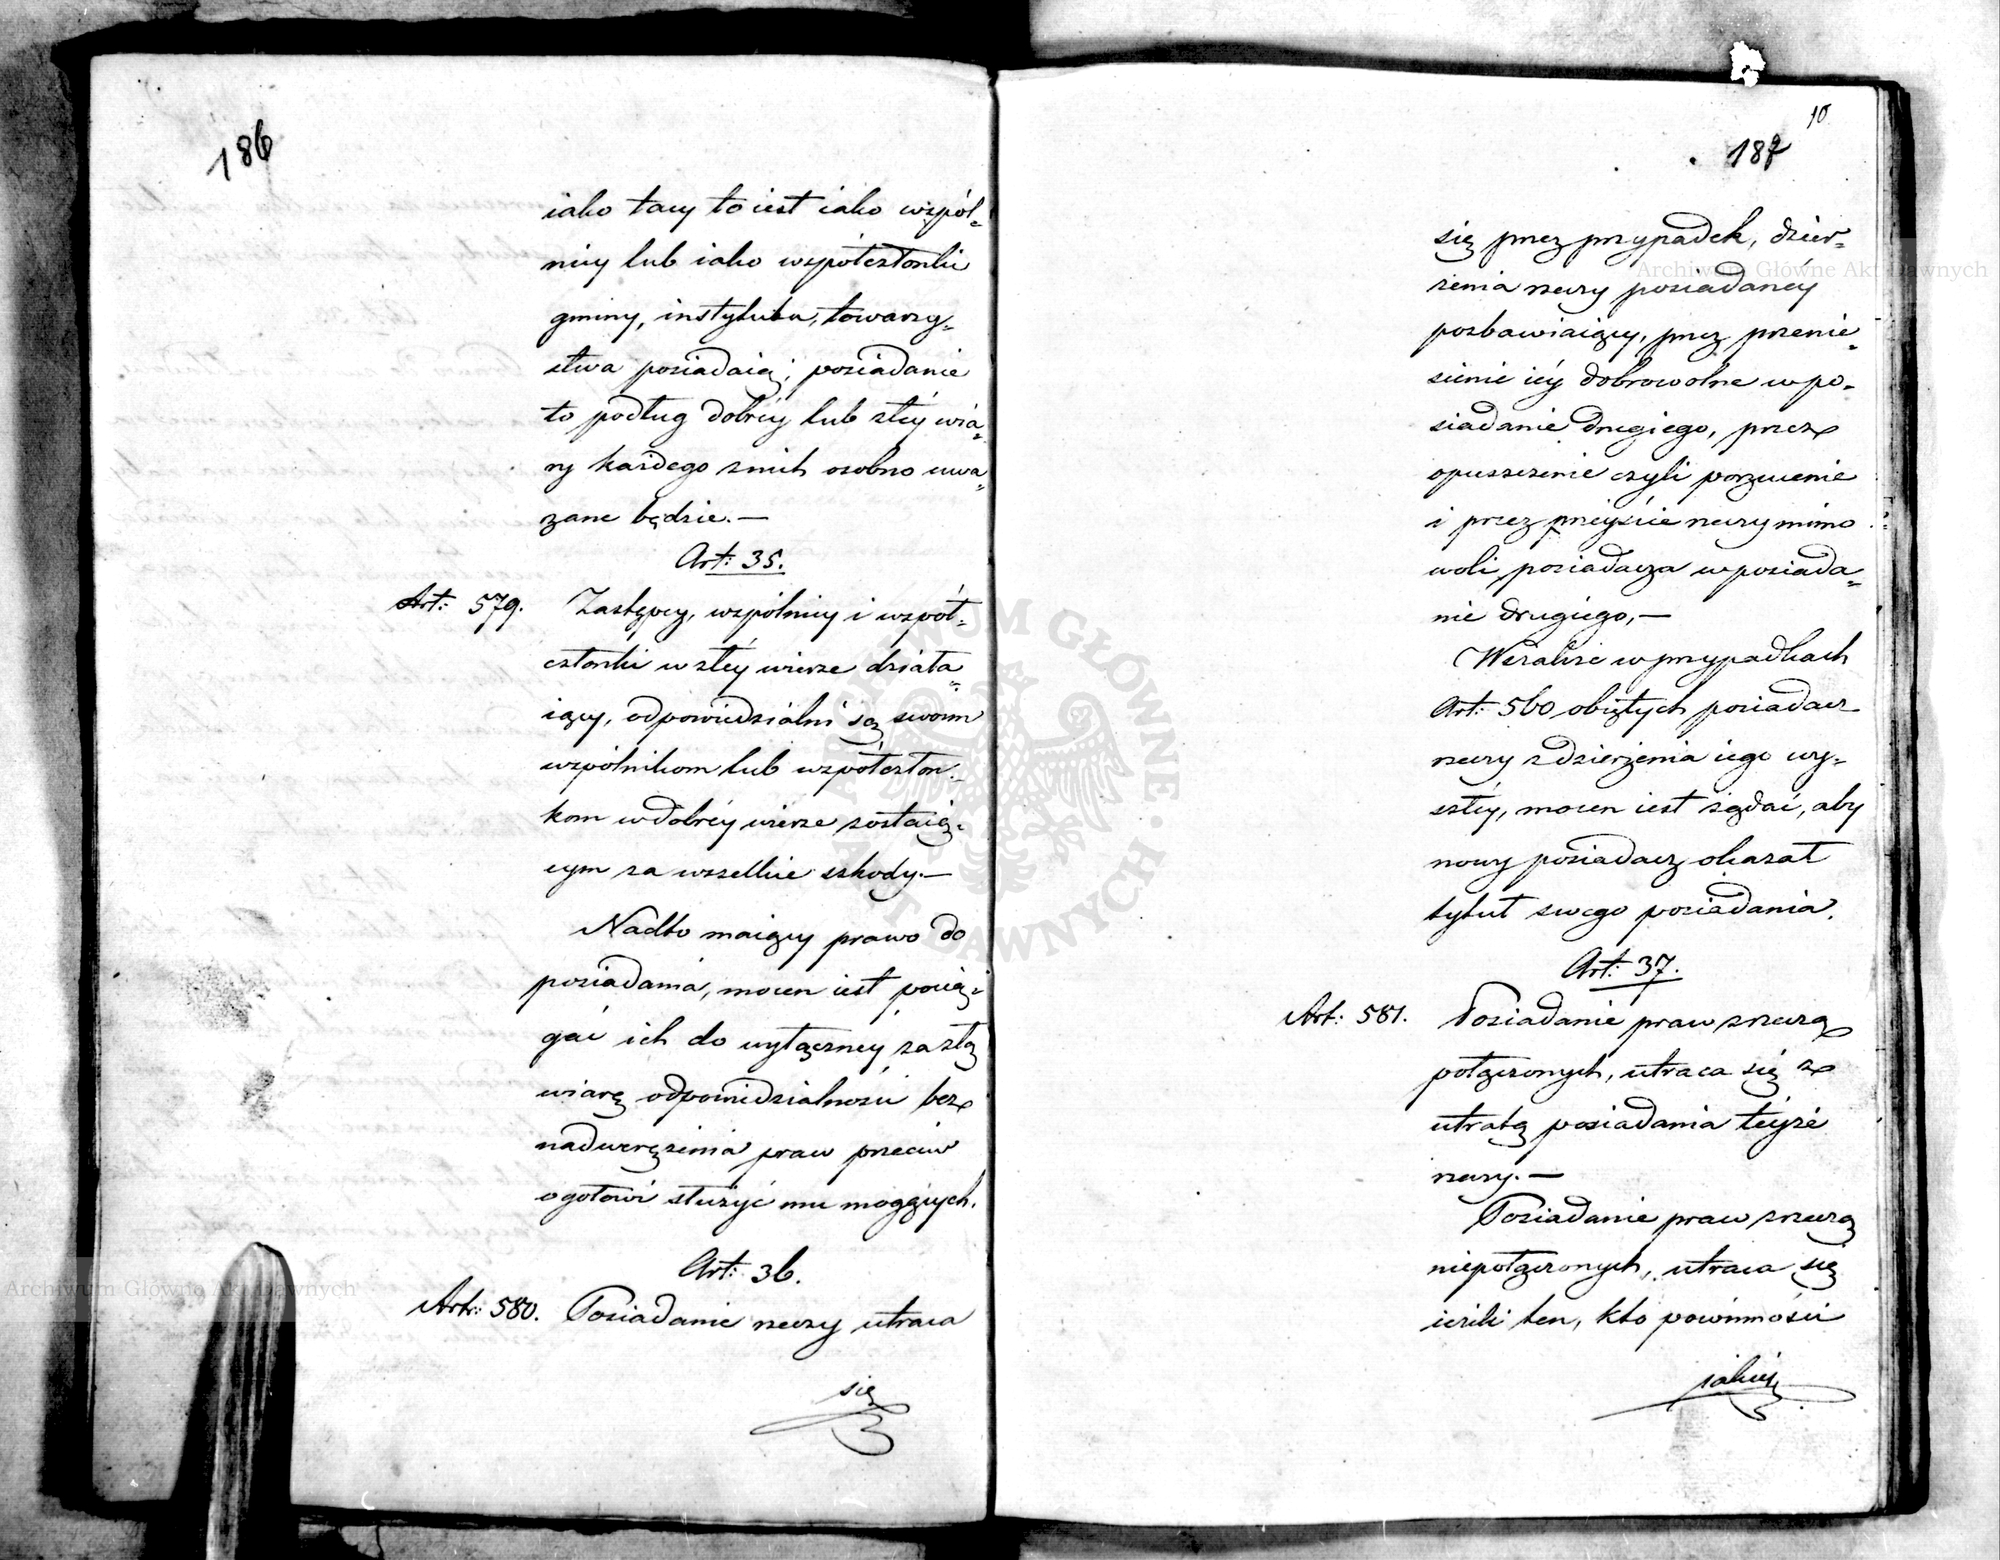 186
iako tacy to iest iako wspól-
nicy lub iako współczłonki
gminy, instytutu, towarzy-
stwa posiadaią; posiadanie
to podług dobréy lub złéy wia-
ry każdego znich osobno uwa-
żane będzie.—
Art: 35.
Art: 579. Zastępcy, wspólnicy i współ-
członki w złéy wierze działa-
iący, odpowiedzialni są swoim
wspólnikom lub współczłon-
kom w dobréy wierze zostaią-
cym za wszelkie szkody.—
Nadto maiący prawo do
posiadania, mocen iest pocią-
gać ich do wyłączney za złą
wiarę odpowiedzialności bez
nadweręzenia praw przeciw
ogołowi służyć mu mogących.
Art: 36.
Art: 580. Posiadanie rzeczy utraca
się
10
187
się przez przypadek, dzier-
żenia rzeczy posiadanéy
pozbawiaiący, przez przenie-
sienie iéy dobrowolne w po-
siadanie drugiego, przez
opuszczenie czyli porzucenie
i przez przeyście rzeczy mimo
woli posiadacza w posiada-
nie drugiego,—
Wszakże w przypadkach
Art: 560 obiętych posiadacz
rzeczy z dzierżenia iego wy-
szłéy, mocen iest żądać, aby
nowy posiadacz okazał
tytuł swego posiadania.
Art: 37.
Art: 581. Posiadanie praw z rzeczą
połączonych, utraca się z
utratą posiadania téyże
rzeczy.—
Posiadanie praw z rzeczą
niepołączonych, utraca się
ieżeli ten, kto powinności
iakiéy
Archiwum Główne Akt Dawnych
Archiwum Główne Akt Dawnych
ARCHIWUM GŁÓWNE AKT DAWNYCH